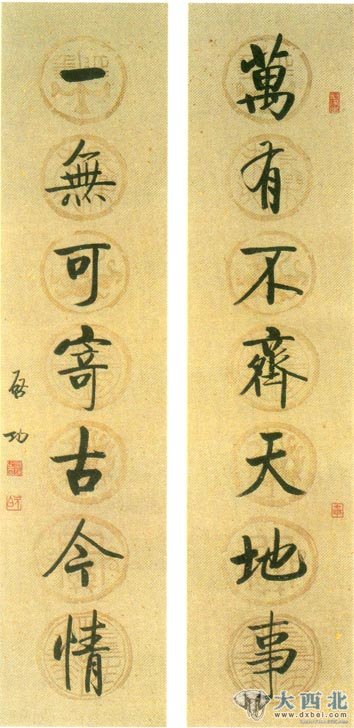 萬有不齊天地事
一無可寄古今情
启功
大西北
www.dxbei.com